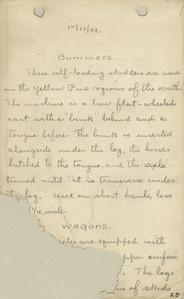 10/17/02.
Bummers.
These self-loading skidders are used
in the Yellow Pine regions of the South.
The machine is a low flat-wheeled
cart with a bunk behind and a
tongue before. The bunk is inserted
alongside under the log, the horses
hitched to the tongue, and the axle
turned until it is transverse under
log. Used on short hauls, less
1/4 mile.
Wagons.
are equipped with
upper surface
The logs
of skids
28